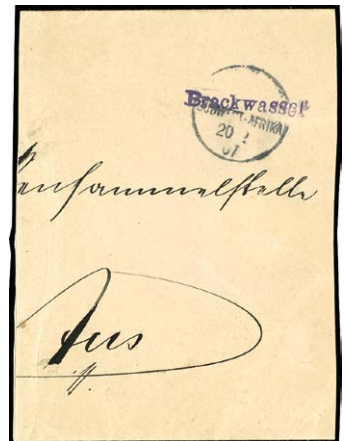 Brackwasser
SÜDWEST-AFRIKA
20 2
07
ensammelstelle
Aus